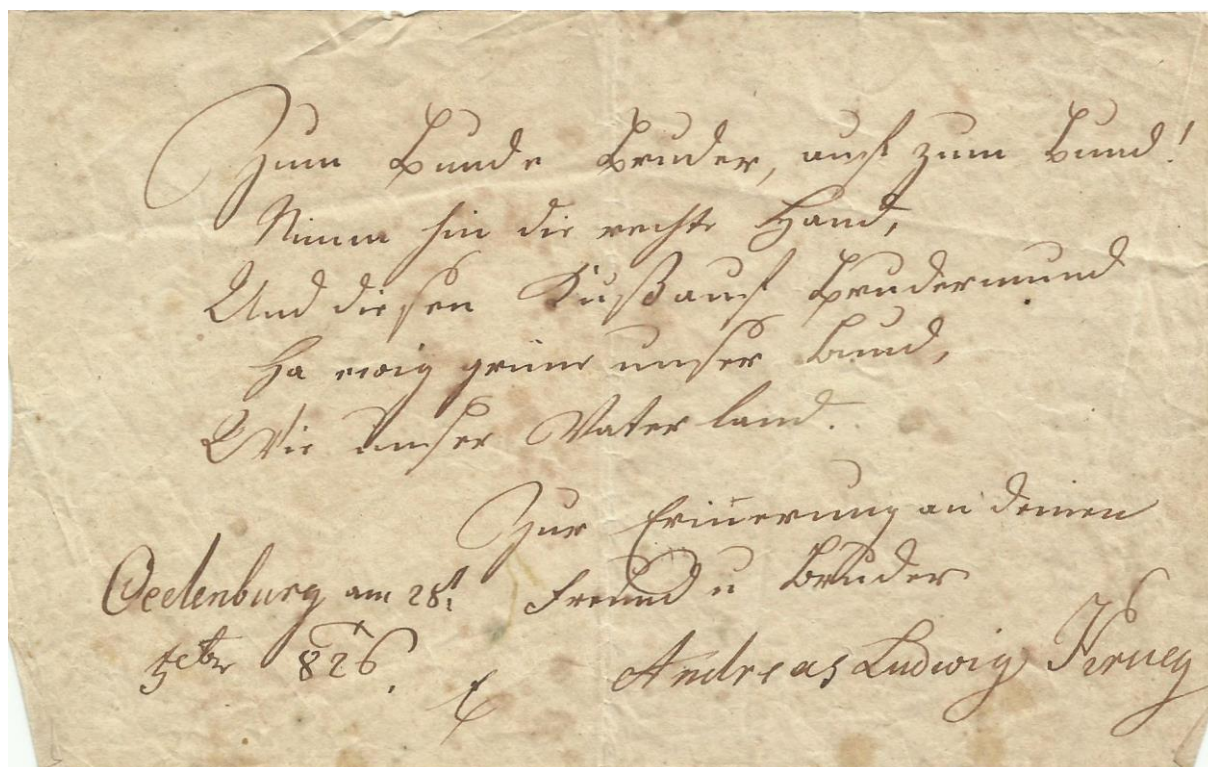 Zum Bunde Bruder, auf zum Bund!
Nimm hin die rechte Hand,
Und diesen Kuß auf Brudermund
Ha ewig grüne unser Bund,
Wie unser Vaterland.
Zur Erinerung an deinen
Freund u Bruder
Oedenburg am 28t
826.
Andreas Ludwig